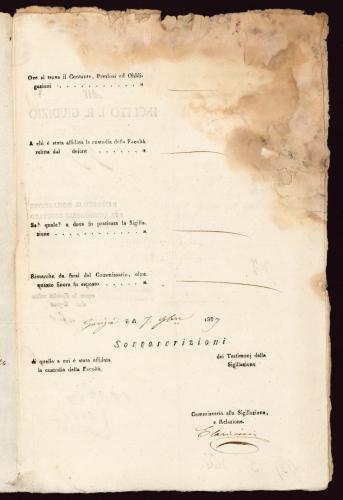 Ove si trova il Contante, Preziosi ed Obbli-
gazioni . . . . . . . . . . . . „
A chi è stata affidata la custodia della Facoltà
relitta dal defunto . . . . . . . . . . „
Se? quale? e dove fu praticata la Sigilla-
zione . . . . . . . . . . . . „
Rimarche da farsi dal Commissario, oltre
quanto finora fu esposto . . . . . . . „
li 7 9bre 18
Sottoscrizioni
di quello a cui è stata affidata
la custodia della Facoltà.
dei Testimonj della
Sigillazione.
Commissario alla Sigillazione,
e Relazione.